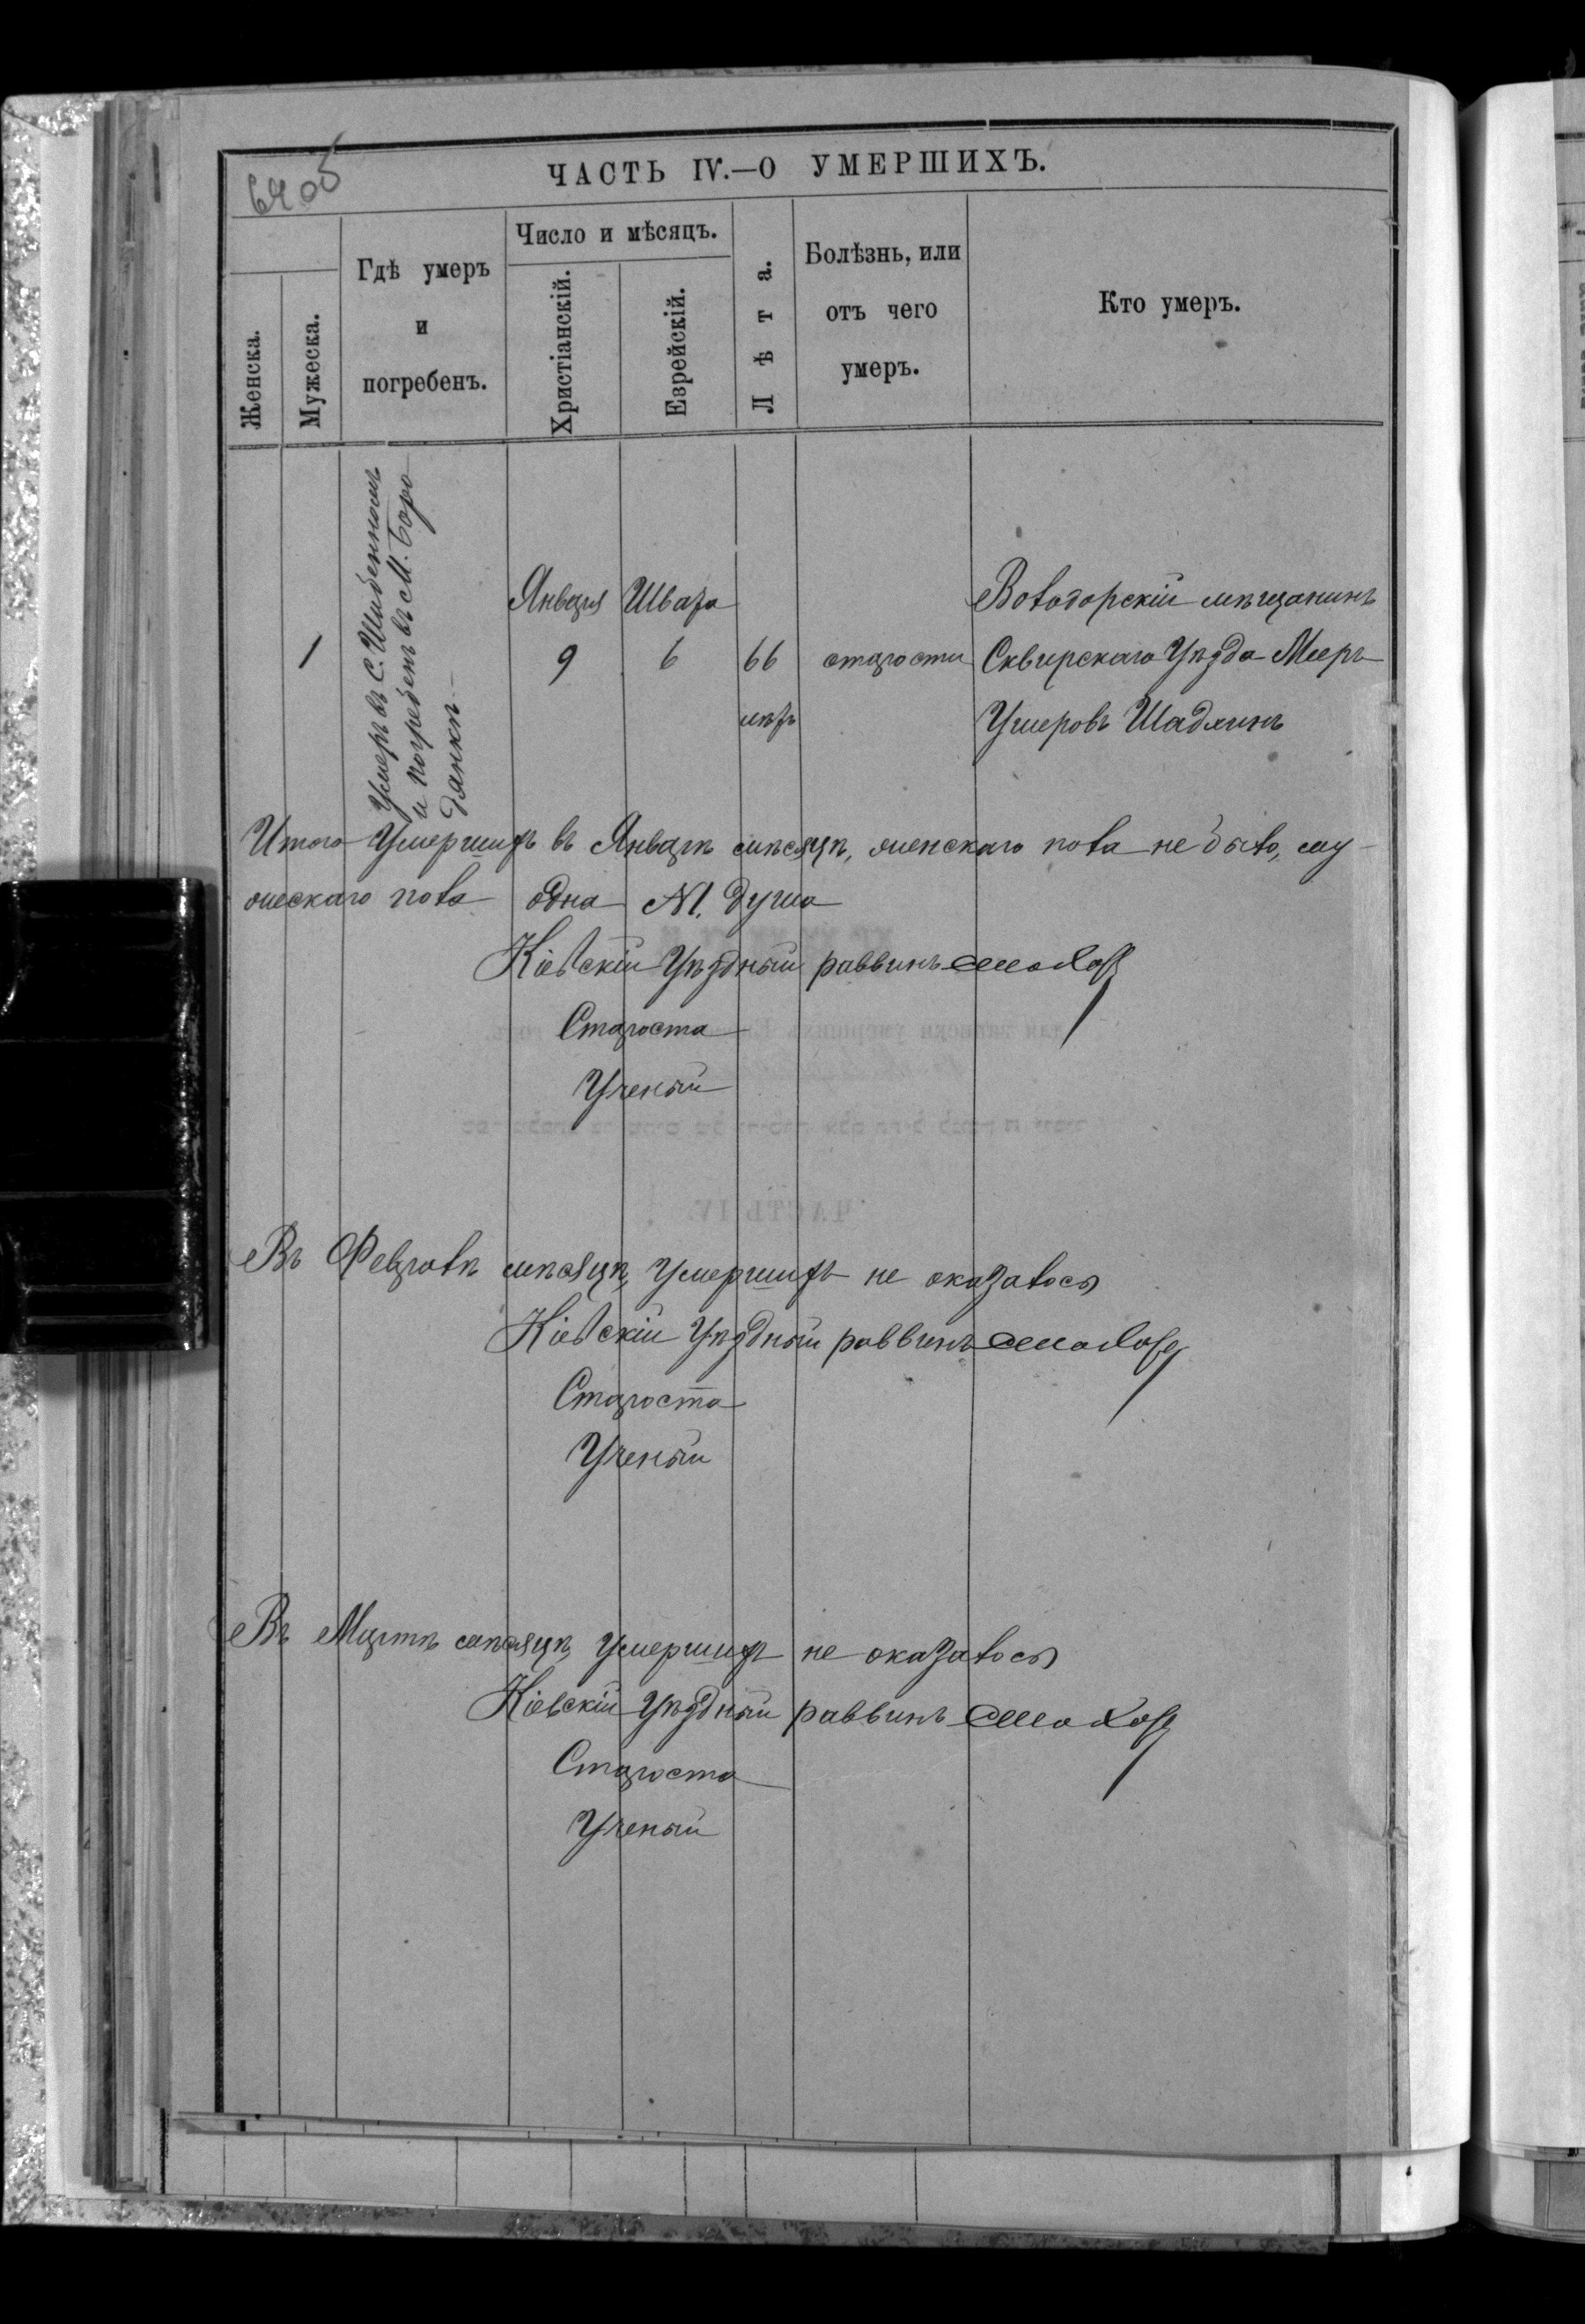 6405
ЧАСТЬ IV.—О УМЕРШИХЪ.
Женска.
Мужеска.
Гдѣ умеръ
и
погребенъ.
Число и мѣсяцъ.
Христіанскій.
Еврейскій.
Лѣта.
Болѣзнь, или
отъ чего
умеръ.
Кто умеръ.
1
Умеръ въ С. Шибенномъ
и погребенъ въ М. Боро
дянкѣ
Января
9
Швата
6
66
лѣтъ
старости
Володарскій мѣщанинъ
Сквирскаго Уѣзда Мееръ
Умеровъ
Итого Умершихъ въ Январѣ мѣсяцѣ, женскаго пола не было, му-
жескаго пола одна №1. душа
Кіевскій Уѣздный раввинъ
Староста
Ученый
Въ Февралѣ мѣсяцѣ, Умершихъ не оказалось
Кіевскій Уѣздный раввинъ
Староста
Ученый
Въ Мартѣ мѣсяцѣ, Умершихъ не оказалось
Кіевскій Уѣздный раввинъ
Староста
Ученый